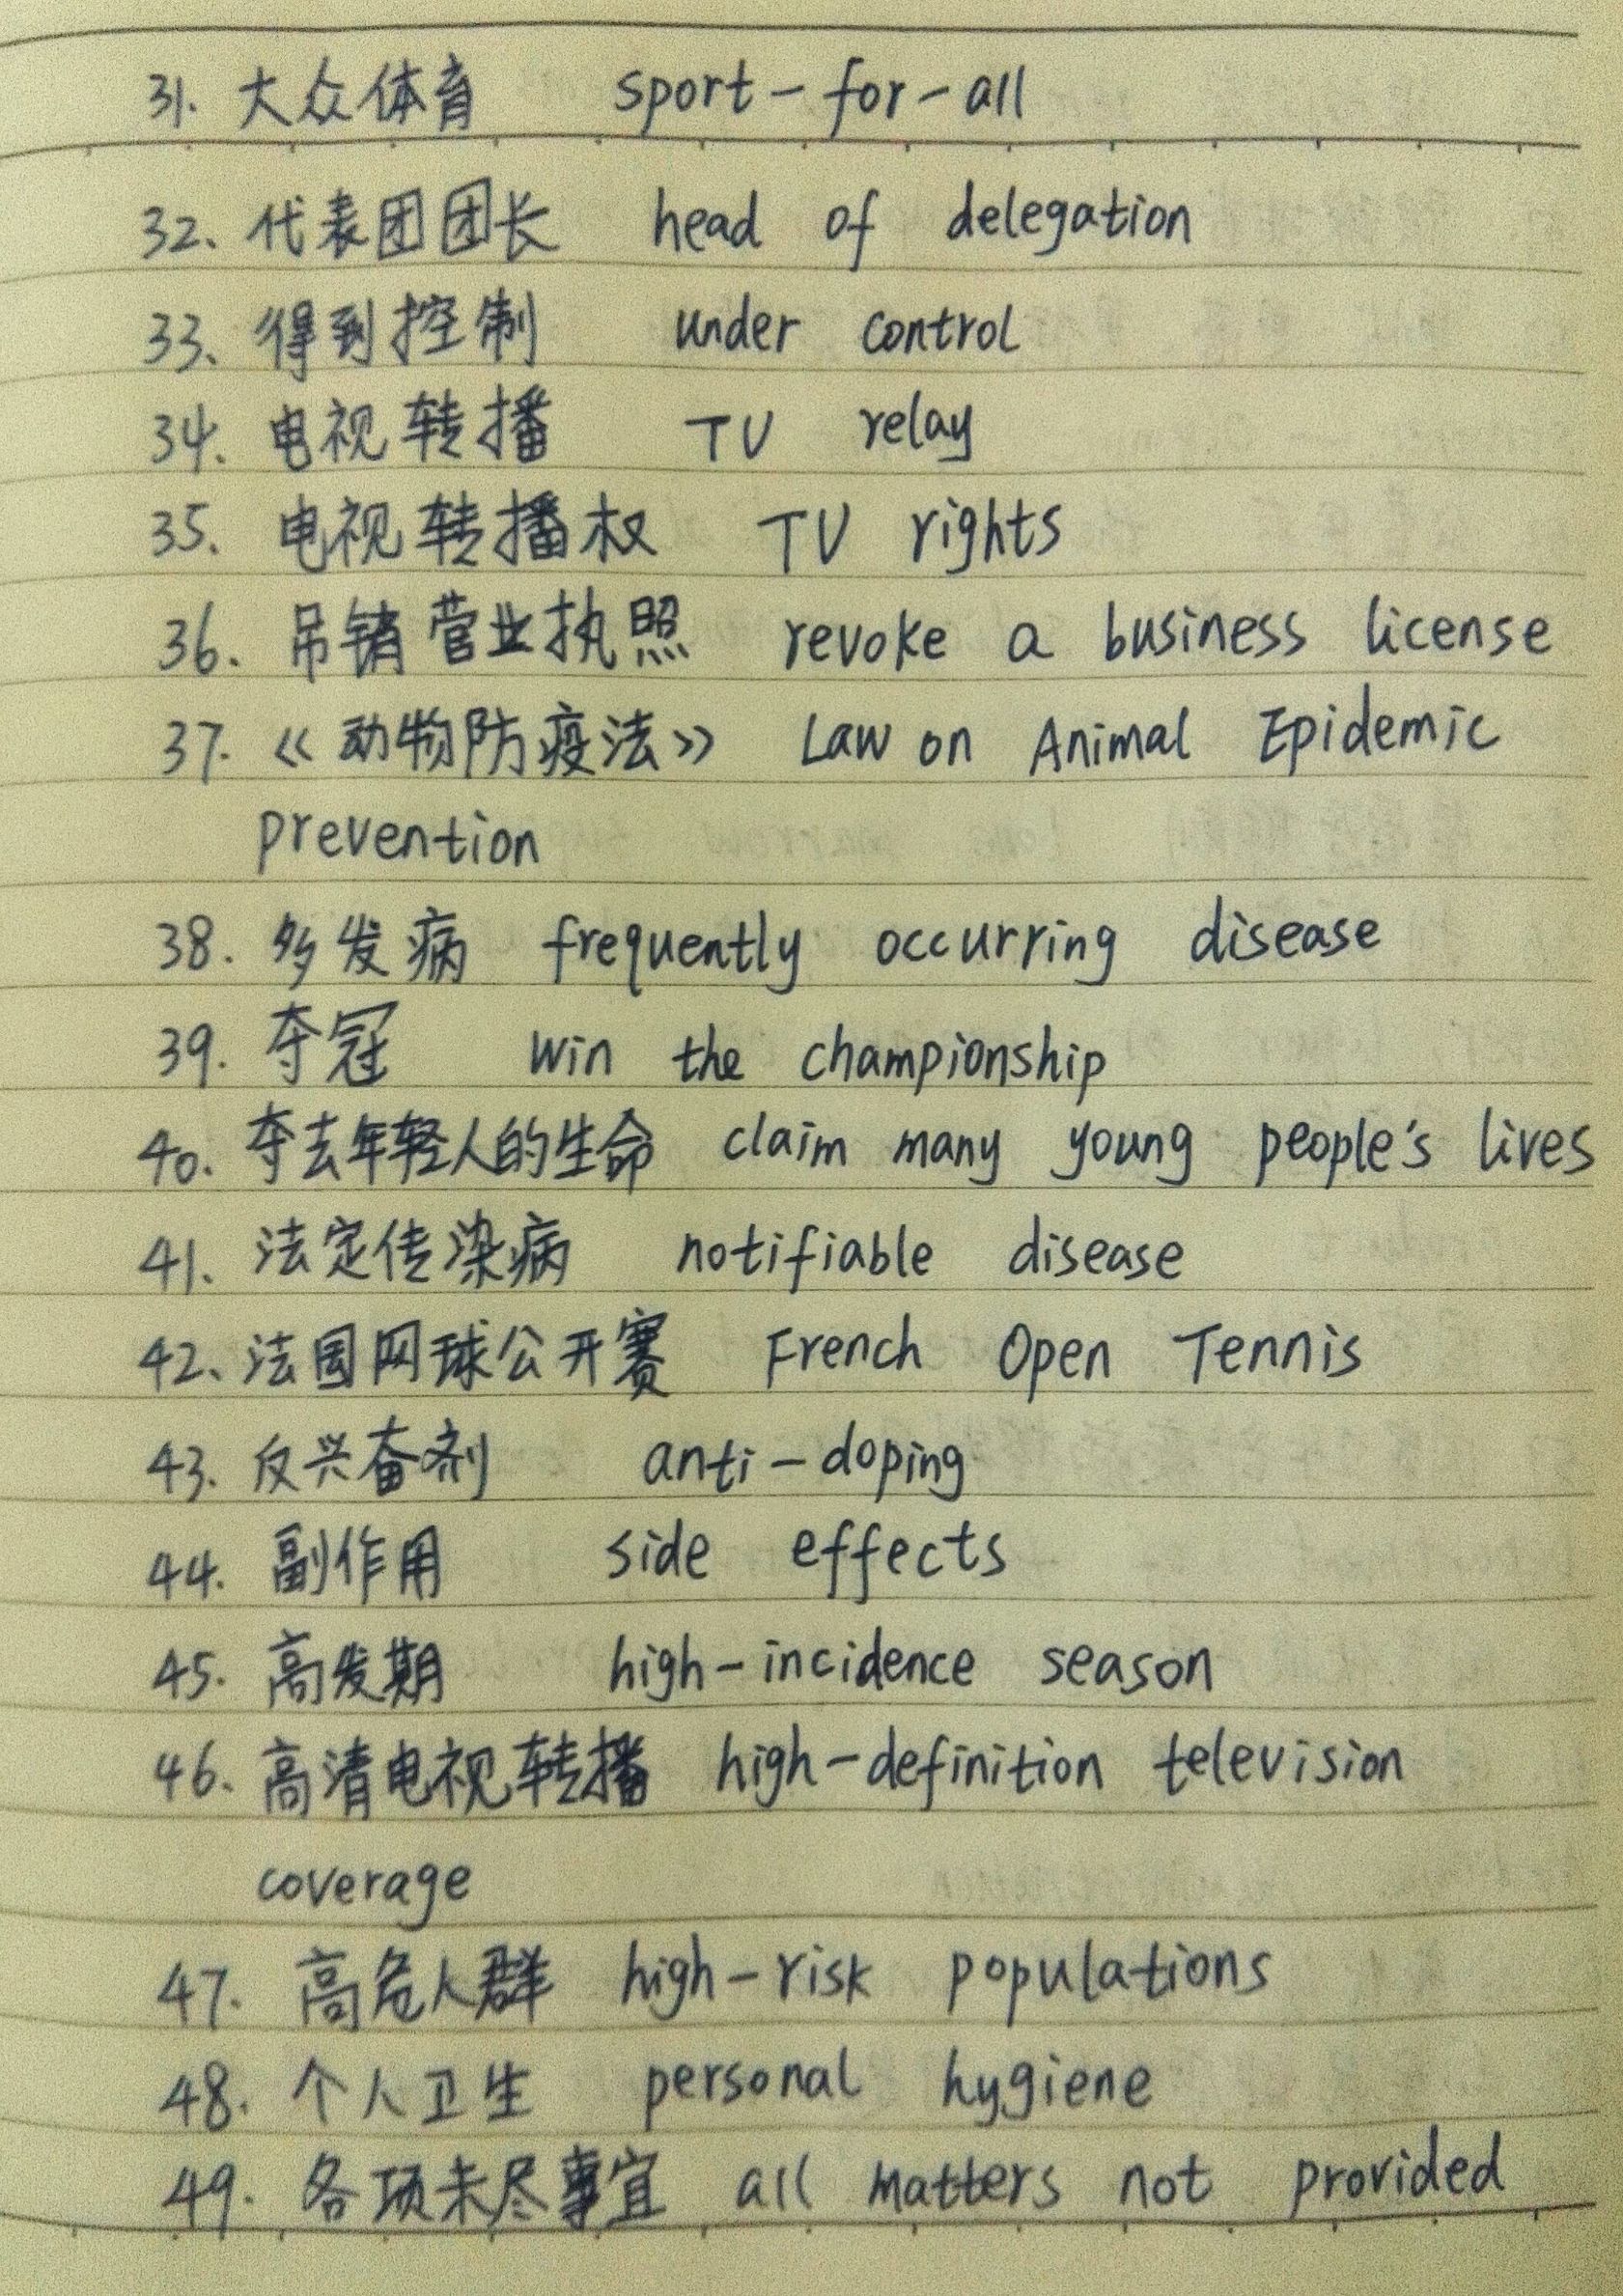 31. 大众体育 sport-for-all
32. 代表团团长 head of delegation
33. 得到控制 under control
34. 电视转播 TV relay
35. 电视转播权 TV rights
36. 吊销营业执照 revoke a business license
37. 《动物防疫法》 Law on Animal Epidemic
prevention
38. 多发病 frequently occurring disease
39. 夺冠 win the championship
40. 夺去年轻人的生命 claim many young people's lives
41. 法定传染病 notifiable disease
42. 法国网球公开赛 French Open Tennis
43. 反兴奋剂 anti-doping
44. 副作用 side effects
45. 高发期 high-incidence season
46. 高清电视转播 high-definition television
coverage
47. 高危人群 high-risk populations
48. 个人卫生 personal hygiene
49. 各项未尽事宜 all matters not provided